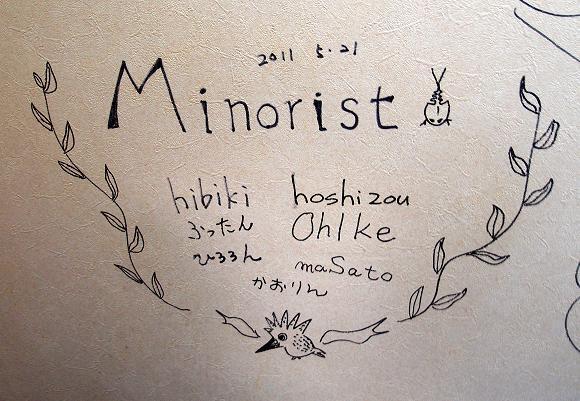 2011 5.21
Minorist
hibiki hoshizou
ぶったん Ohlke
ひろろん maSato
かおりん